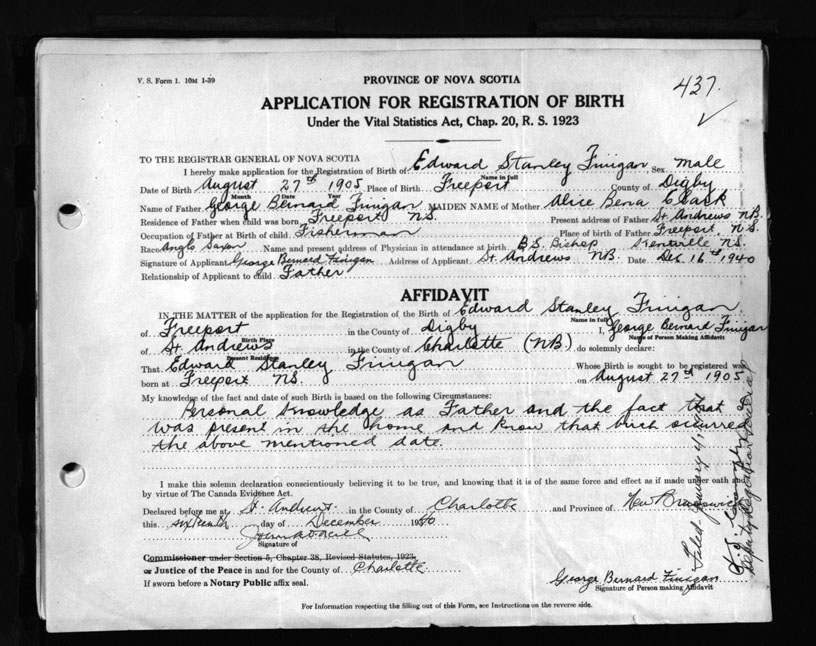 V. S. Form 1. 10M 1-39
437.
PROVINCE OF NOVA SCOTIA
APPLICATION FOR REGISTRATION OF BIRTH
Under the Vital Statistics Act, Chap. 20, R. S. 1923
TO THE REGISTRAR GENERAL OF NOVA SCOTIA
I hereby make application for the Registration of Birth of Edward Stanley Finigan Sex male
Name in full
Date of Birth August 27th 1905 Place of Birth Freeport County of Digby
Month Date Year
Name of Father George Bernard Finigan MAIDEN NAME of Mother Alice Bena
Residence of Father when child was born Freeport NS. Present address of Father St. Andrews NB.
Occupation of Father at Birth of child Fisherman Place of birth of Father Freeport, N.S.
Race Anglo Saxon Name and present address of Physician in attendance at birth B.S. Bishop Kentville NS.
Signature of Applicant George Bernard Finigan Address of Applicant St. Andrews NB. Date Dec 16th 1940
Relationship of Applicant to child Father
AFFIDAVIT
IN THE MATTER of the application for the Registration of the Birth of Edward Stanley Finigan
Name in full
of Freeport in the County of Digby I, George Bernard Finigan
Birth Place Name of Person Making Affidavit
of St. Andrews in the County of Charlotte (NB) do solemnly declare:
Present Residence
That Edward Stanley Finigan Whose Birth is sought to be registered was
born at Freeport NS. on August 27th 1905
My knowledge of the fact and date of such Birth is based on the following Circumstances:
Personal knowledge as Father and the fact that I
was present in the home and know that birth occurred
the above mentioned date.
I make this solemn declaration conscientiously believing it to be true, and knowing that it is of the same force and effect as if made under oath and
by virtue of The Canada Evidence Act.
Declared before me at St. Andrews in the County of Charlotte and Province of New Brunswick
this sixteenth day of December 1940
Signature of
Commissioner under Section 5, Chapter 38, Revised Statutes, 1923,
or Justice of the Peace in and for the County of Charlotte
If sworn before a Notary Public affix seal.
George Bernard Finigan
Signature of Person making Affidavit
For Information respecting the filling out of this Form, see Instructions on the reverse side.
Filed January